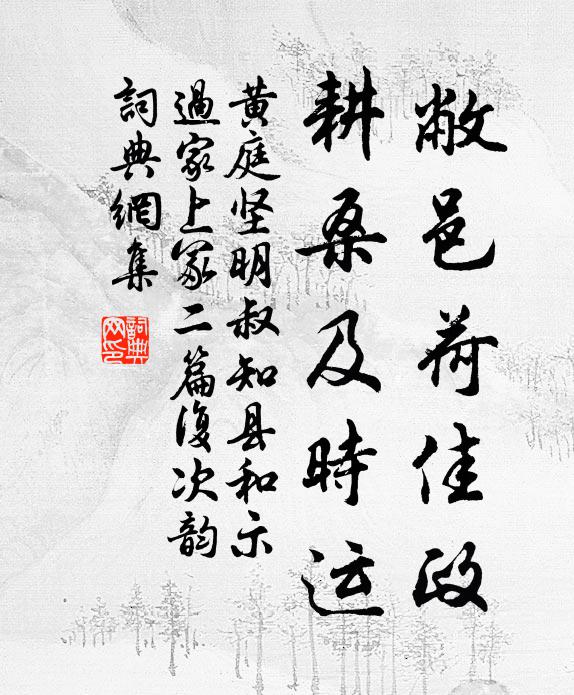 敝邑荷佳政
耕桑及時运
黄庭坚明叔知县和示
過家上冢二篇復次韵
詞典網集
詞典
网印